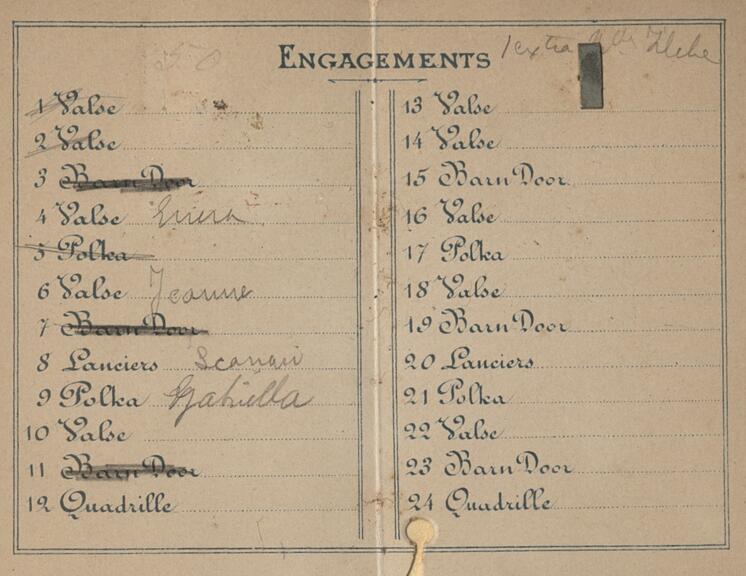 ENGAGEMENTS 1 extra
1 Valse
2 Valse
3 Barn Door
4 Valse
5 Polka
6 Valse Jeanne
7 Barn Door
8 Lanciers
9 Polka Gabriella
10 Valse
11 Barn Door
12 Quadrille
13 Valse
14 Valse
15 Barn Door
16 Valse
17 Polka
18 Valse
19 Barn Door
20 Lanciers
21 Polka
22 Valse
23 Barn Door
24 Quadrille